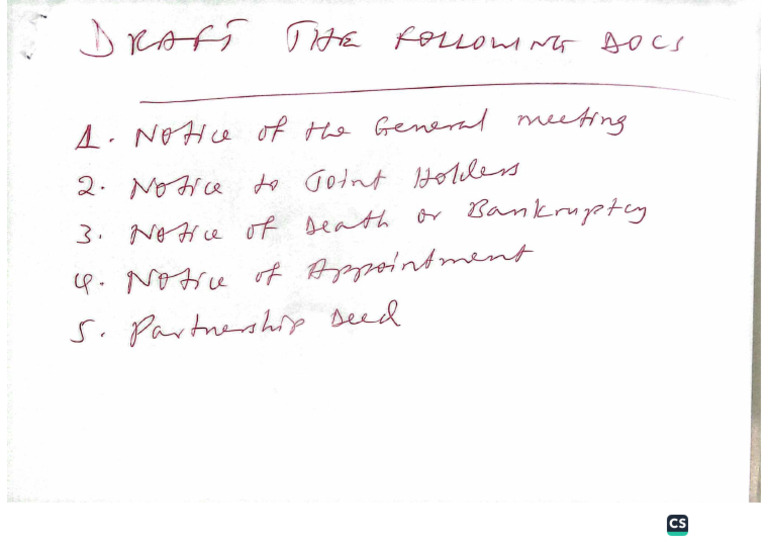 DRAFT THE FOLLOWING DOCS
1. Notice of the General meeting
2. Notice to Joint Holders
3. Notice of Death or Bankruptcy
4. Notice of Appointment
5. Partnership Deed
CS